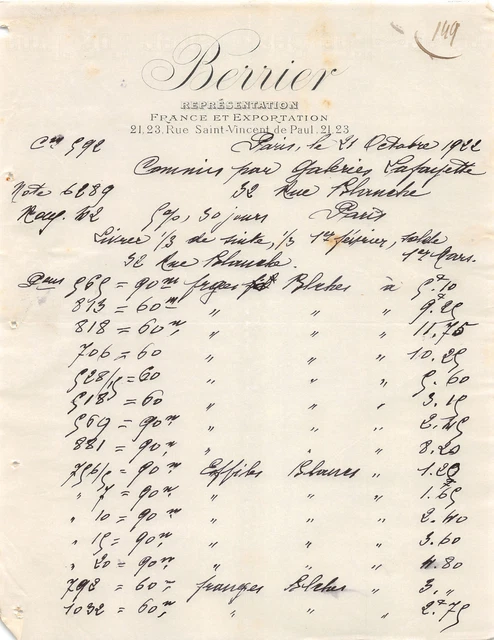 149
Berrier
REPRÉSENTATION
FRANCE ET EXPORTATION
21.23. Rue Saint-Vincent de Paul. 21.23
Con 592 Paris, le 21 Octobre 1922
Commis par Galeries Lafayette
Note 6289 32 Rue Blanche
Ray. 5%, 30 jours Paris
Livrer 1/3 de suite, 1/3 1er février, solde
32 Rue Blanche. 1er Mars.
565 = 90m frges Blches à 5f10
813 = 60m " " " 9.25
818 = 60m, " " " 11.75
706 = 60 " " " 10.25
528/15 = 60 " " " 5.60
518 = 60 " " " 3.15
569 = 90m " " " 2.45
881 = 90m, " " " 8.20
756/5 = 90m Effilés Blancs " 1.20
" 7 = 90m, " " " 1.65
" 10 = 90m " " " 2.40
" 15 = 90m, " " " 3.60
" 20 = 90m, " " " 4.80
798 = 60m franges Blches " 3."
1032 = 60m, " " " 2.75